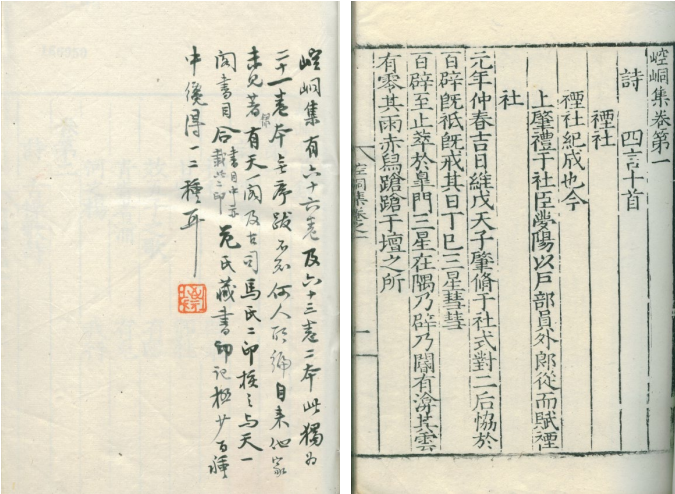 崆峒集卷第一
詩 四言十首
禋社
禋社紀成也今
上肇禮于社臣夢陽以戶部員外郎從而賦禋
社
元年仲春吉日維戊天子肇脩于社式對二后恊於
百辟旣祗旣戒其日丁巳三星彗彗
百辟至止萃於臯門三星在隅乃辟乃闢有渰其雲
有零其雨赤舄蹌蹌于壇之所
崆峒集卷之一
一
崆峒集有六十六卷及六十三卷二本此獨為
二十一卷本無序跋不知何人所編目來他家
未見著錄有天一閣及古司馬氏二印核之与天一
閣書目合書目中亦載此二印范氏藏書印記極少百種
中僅得一二種耳